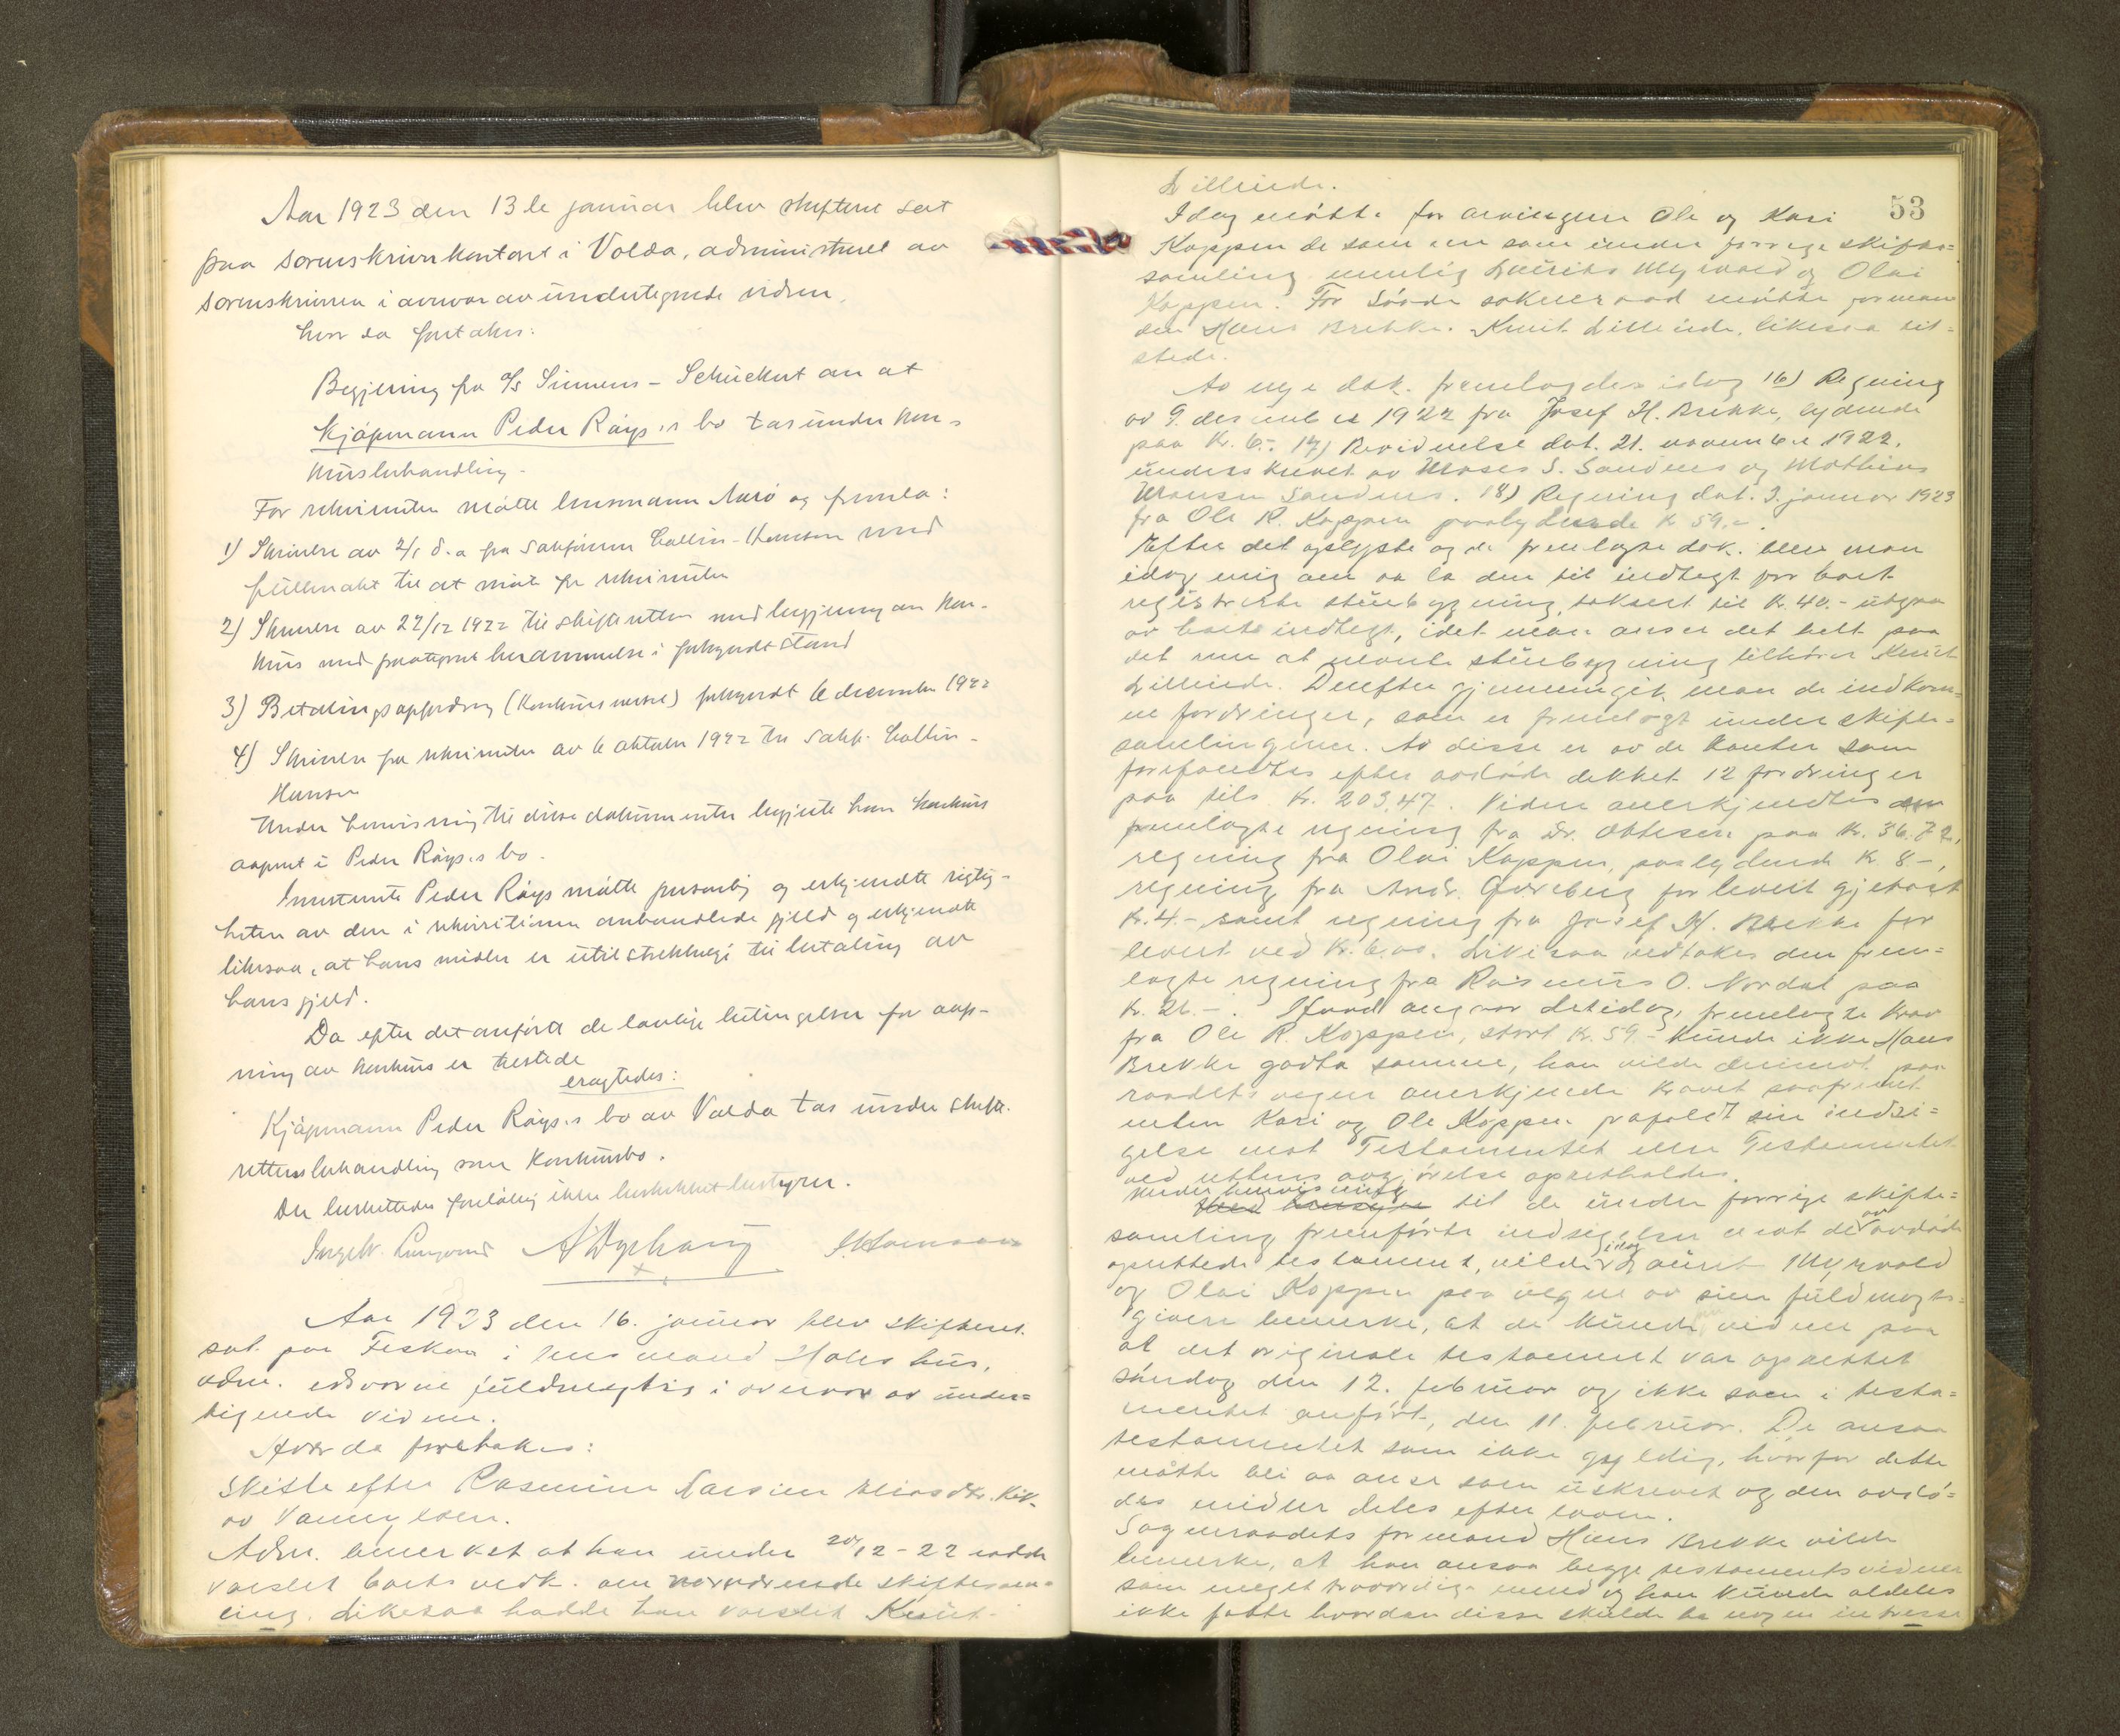 Aar 1923 den 13de januar blev skifteret sat
paa sorenskriverkontoret i Volda, administreret av
sorenskriveren i overvær av undertegnede vidner,
hvor da foretokes:
Begjæring fra A/S Siemens-Schuckert om at
Kjøpmann Peder Røys's bo tas under kon-
kursbehandling.
For rekvirenten møtte lensmann Aarø og fremla:
1) Skrivelse av 2/1 d.a fra sakfører Collin-Hansen med
fuldmakt til at møte for rekvirenten
2) Skrivelse av 22/12 1922 til skifteretten med begjæring om kon-
kurs med paategnet berammelse i forkyndt stand
3) Betalingsopfordring (Konkursvarsel) forkyndt 6 december 1922
4) Skrivelse fra rekvirenten av 6 oktober 1922 til sakf. Collin-
Hansen
Under henvisning til disse dokumenter begjærte han konkurs
aapnet i Peder Røys.s bo.
Innstevnte Peder Røys møtte personlig og erkjendte rigtig-
heten av den i rekvisitionen omhandlede gjeld og erkjendte
likesaa, at hans midler er utilstrekkelig til betaling av
hans gjeld.
Da efter det anførte de lovlige betingelser for aap-
ning av konkurs er tilstede
eragtedes:
Kjøpmann Peder Røys.s bo av Volda tas under skifte-
rettens behandling som konkursbo.
Der besluttedes foreløbig ikke beskikket bestyrer.
Aar 1923 den 16. januar blev skifteret
sat paa Fiskaa i lensmand Holes hus,
adm. edsvorne fuldmegtig i overvær av under-
tegnede vidner.
Hvor da foretokes:
Skifte efter Rasmine Larsine Eliasdtr. Kil-
av Vannylven.
Adm. bemerket at han under 20/12-22 hadde
varslet boets vedk. om nærværende skiftesam-
ling. Likesaa hadde han varslet Knut
53
Lillerude.
Idag møtte for arvingene Ole og Kari
Koppen de samme som under forrige skifte-
samling nemlig Laurits Myrvold og Olai
Koppen. For Søvde sokneraad møtte forman-
den Hans Brekke. Knut Lillerude likesaa til-
stede.
Av nye dok. fremlagdes idag 16) Regning
av 9. desember 1922 fra Josef H. Brekke, lydende
paa Kr. 6.-. 17) Bevidnelse dat. 21. november 1922.
underskrevet av Moses S. Sandnes og Mathias
Mosesen Sandnes. 18) Regning dat. 3. januar 1923
fra Ole R. Koppen paalydende kr 59.-.
Efter det oplyste og de fremlagte dok. blev man
idag enig om aa la den til indtegt for boet
registrerte stuebygning, taksert til Kr. 40.- utgaa
av boets indtegt, idet man anser det helt paa
det rene at nevnte stuebygning tilhører Knut
Lillerude. Derefter gjennemgik man de indkom-
ne fordringer, som er fremlagt under skifte-
samlingene. Av disse er av de kontanter som
forefandtes efter avdøde dekket 12 fordringer
paa tils. Kr. 203,47. Videre anerkjendtes den
fremlagte regning fra Dr. Ottesen paa Kr. 36.72,
regning fra Olai Koppen, paalydende Kr. 8-,
regning fra Andr. Gursberg for levert gjetost
Kr. 4.- samt regning fra Josef H. Brekke for
levert ved Kr. 6.00. Likesaa vedtokes den frem-
lagte regning fra Rasmus O. Nordal paa
Kr. 26.-. Ifald angaar det idag, fremlagte krav
fra Ole R. Koppen, stort Kr. 59.- kunde ikke Hans
Brekke godta samme, han vilde derimot paa
raadets vegne anerkjende kravet saafremt
enten Kari og Ole Koppen frafaldt sin indsi-
gelse mot Testamentet eller Testamentet
ved rettens avgjørelse opretholdes.
Under henvisning til de under forrige skifte-
samling fremførte indsigelser mot det av avdøde
oprettede testament, vilde idag Laurits Myrvold
og Olai Koppen paa vegne av sine fuldmagts-
givere bemerke, at de kunde vidne paa
at det originale testament var oprettet
søndag den 12. februar og ikke som i testa-
mentet anført, den 11. februar. De ansaa
testamentet som ikke gyldig, hvorfor dette
måtte bli aa anse som uskrevet og den avdø-
des midler deles efter loven.
Sogneraadets formand Hans Brekke vilde
bemerke, at han ansaa begge testamentsvidner
som meget troværdige mend og han kunde aldeles
ikke fatte hvordan disse skulde ha nogen interesse